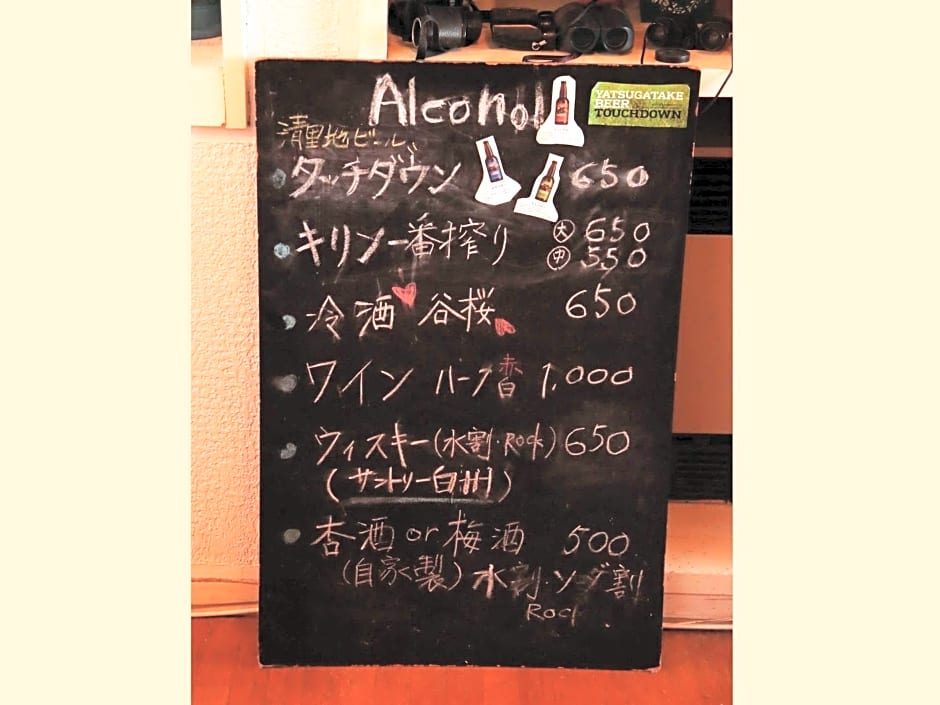 Alcohol
YATSUGATAKE
BEER
TOUCHDOWN
清里地ビール
タッチダウン 650
キリン一番搾り 大 650
中 550
冷酒 谷桜 650
ワイン ハーフ 赤 白 1,000
ウィスキー(水割・Rock) 650
(サントリー白州)
杏酒 or 梅酒 500
(自家製) 水割・ソーダ割
Rock